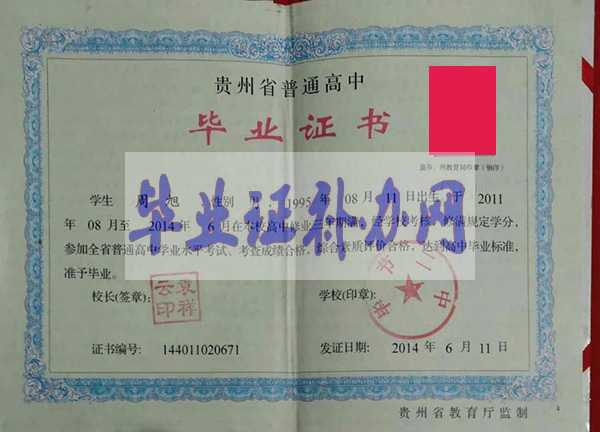 贵州省普通高中
毕业证书
盖市、州教育局印章(钢印)
学生 周 旭 性别 1995 年 08 月 11 日出生 于 2011
年 08 月至 2014 年 6 月在本校高中修业三年期满,经学校考核,修满规定学分,
毕业证补办网
参加全省普通高中学业水平考试、考查成绩合格,综合素质评价合格,达到高中毕业标准,
准予毕业。
校长(签章): 袁祥云印
学校(印章): 毕节二中
证书编号: 144011020671 发证日期: 2014 年 6 月 11 日
贵州省教育厅监制